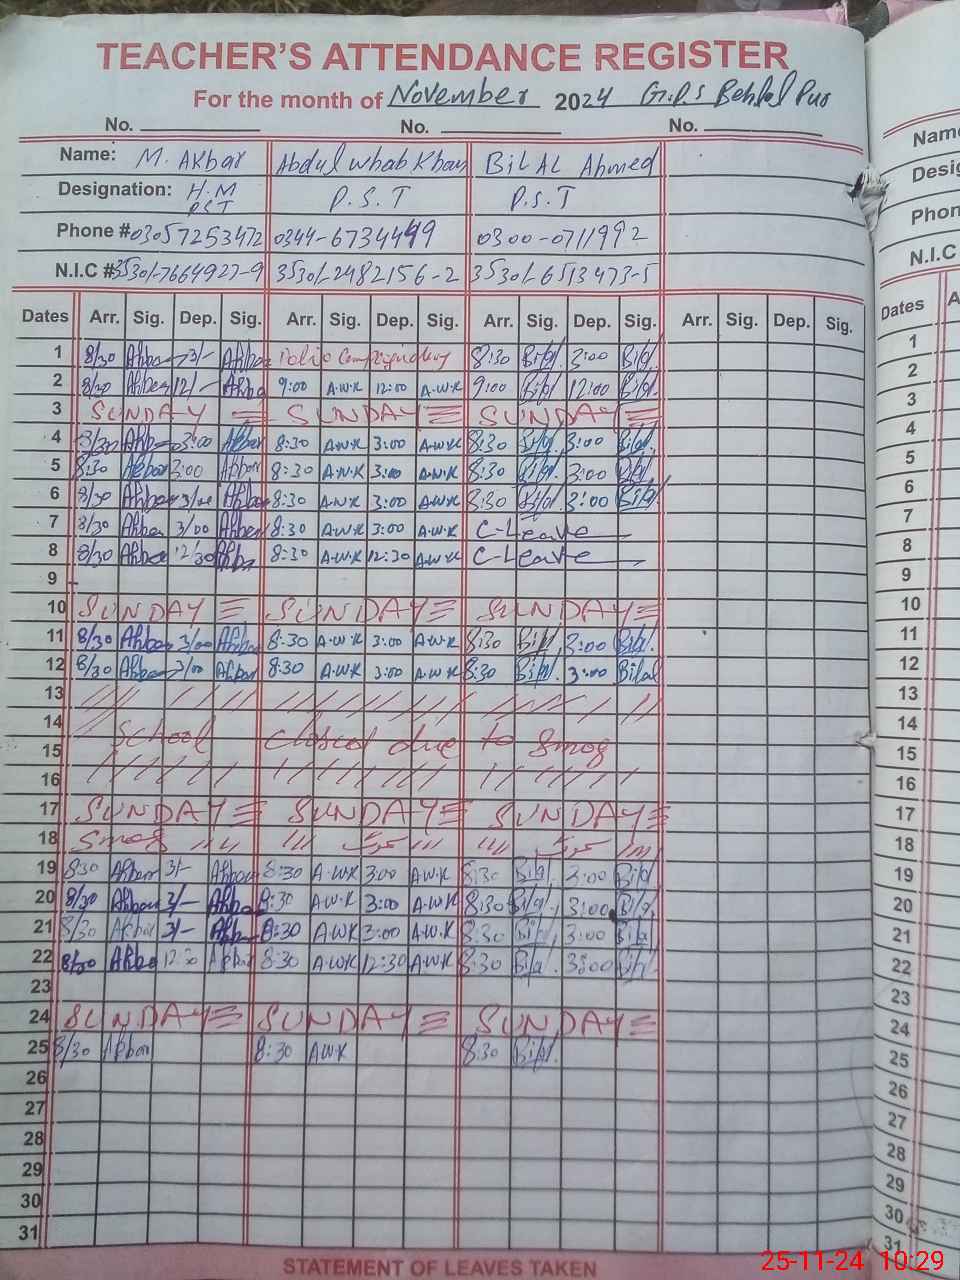 TEACHER'S ATTENDANCE REGISTER
For the month of November 2024 G.P.S Behlal Pur
No. No. No.
Name: M. Akbar Abdul Whab Khan BILAL Ahmed Name
Designation: H.M P.S.T P.S.T Desig
PST
Phone # 03057253472 0344-6734449 0300-0711992 Phon
N.I.C # 35301-7664927-9 35301-2482156-2 35301-6513473-5 N.I.C
Dates Arr. Sig. Dep. Sig. Arr. Sig. Dep. Sig. Arr. Sig. Dep. Sig. Arr. Sig. Dep. Sig. Dates A
1 8/30 Akbar 3/- Akbar Polio 8:30 Bilal 3:00 Bilal 1
2 8/30 Akbar 12/- Akba 9:00 A.W.K 12:00 A.W.K 9:00 Bilal 12:00 Bilal 2
3 SUNDAY SUNDAY SUNDAY 3
4 8/30 Akbar 3:00 Akbar 8:30 A.W.K 3:00 A.W.K 8:30 Bilal 3:00 Bilal 4
5 8:30 Akbar 3:00 Akbar 8:30 A.W.K 3:00 A.W.K 8:30 Bilal 3:00 Bilal 5
6 8/30 Akbar 3/00 Akbar 8:30 A.W.K 3:00 A.W.K 8:30 Bilal 3:00 Bilal 6
7 8/30 Akbar 3/00 Akbar 8:30 A.W.K 3:00 A.W.K C-Leave 7
8 8/30 Akbar 12/30 Akba 8:30 A.W.K 12:30 A.W.K C-Leave 8
9 9
10 SUNDAY SUNDAY SUNDAY 10
11 8/30 Akbar 3/00 Akbar 8:30 A.W.K 3:00 A.W.K 8:30 Bilal 3:00 Bilal 11
12 8/30 Akbar 3/00 Akbar 8:30 A.W.K 3:00 A.W.K 8:30 Bilal 3:00 Bilal 12
13 13
14 School closed due to Smog 14
15 15
16 16
17 SUNDAY SUNDAY SUNDAY 17
18 Smog 18
19 8:30 Akbar 3/- Akbar 8:30 A.W.K 3:00 A.W.K 8:30 Bilal 3:00 Bilal 19
20 8/30 Akbar 3/- Akba 8:30 A.W.K 3:00 A.W.K 8:30 Bilal 3:00 Bilal 20
21 8/30 Akbar 3/- Akba 8:30 A.W.K 3:00 A.W.K 8:30 Bilal 3:00 Bilal 21
22 8/30 Akba 12:30 Akbar 8:30 A.W.K 12:30 A.W.K 8:30 Bilal 3:00 Bilal 22
23 23
24 SUNDAY SUNDAY SUNDAY 24
25 8/30 Akbar 8:30 AWK 8:30 Bilal 25
26 26
27 27
28 28
29 29
30 30
31 31
STATEMENT OF LEAVES TAKEN
25-11-24 10:29